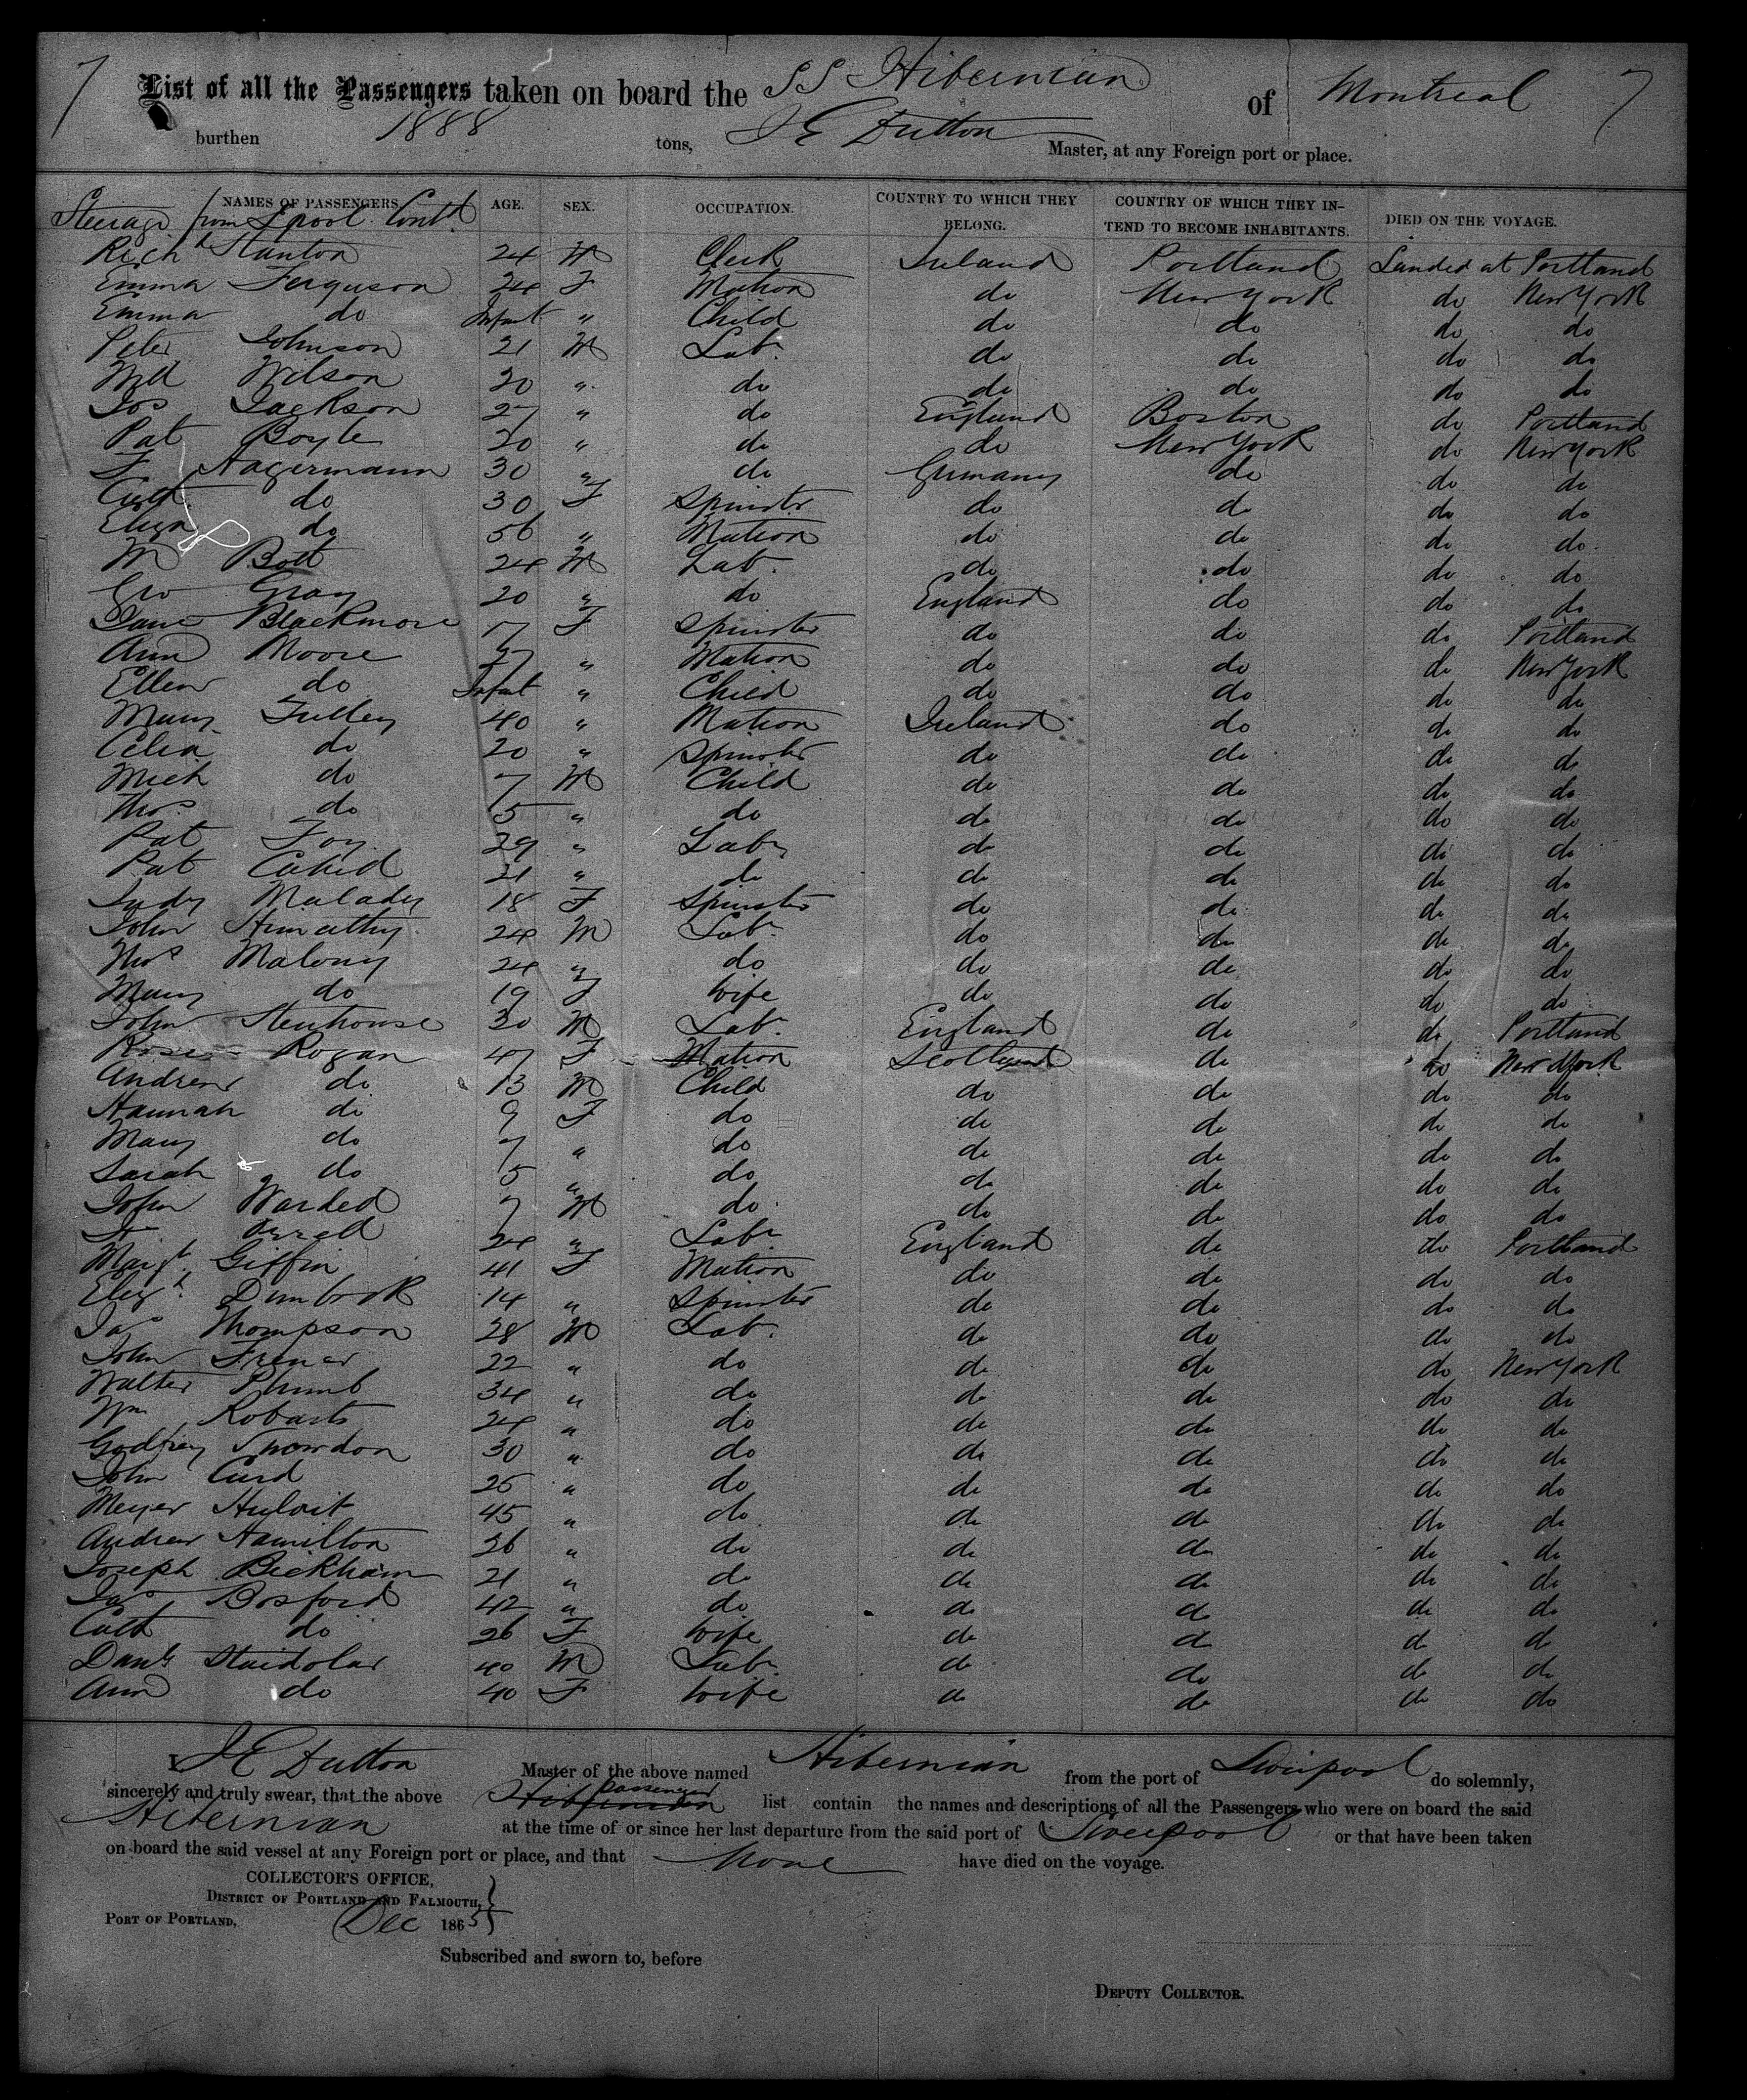 7 List of all the Passengers taken on board the SS Hibernian of Montreal 7
burthen 1888 tons, J E Dutton Master, at any Foreign port or place.
NAMES OF PASSENGERS. AGE. SEX. OCCUPATION. COUNTRY TO WHICH THEY BELONG. COUNTRY OF WHICH THEY INTEND TO BECOME INHABITANTS. DIED ON THE VOYAGE.
Steerage from Lpool Contd
Richd Stanton 24 M Clerk Ireland Portland Landed at Portland
Emma Ferguson 24 F Matron do New York do New York
Emma do Infant " Child do do do do
Peter Johnson 21 M Labr do do do do
Will Wilson 20 " do do do do do
Jos Jackson 27 " do England Boston do Portland
Pat Boyle 20 " do do New York do New York
F Hagermann 30 " do Germany do do do
Cath do 30 F Spinster do do do do
Eliza do 56 " Matron do do do do
M Bott 24 M Lab. do do do do
Geo Gray 20 " do England do do do
Jane Blackmore 17 F Spinster do do do Portland
Ann Moore 27 " Matron do do do New York
Ellen do Infant " Child do do do do
Mary Tulley 40 " Matron Ireland do do do
Celia do 20 " Spinster do do do do
Mich do 7 M Child do do do do
Thos do 5 " do do do do do
Pat Foy 29 " Labr do do do do
Pat 21 " do do do do do
Judy Malady 18 F Spinster do do do do
John 24 M Labr do do do do
Thos Malony 24 " do do do do do
Mary do 19 F Wife do do do do
John Stenhouse 30 M Lab. England do do Portland
Rose Rogan 47 F Matron Scotland do do New York
Andrew do 13 M Child do do do do
Hannah do 9 F do do do do do
Mary do 7 " do do do do do
Sarah do 5 " do do do do do
John Warded 7 M do do do do do
24 " Labr England do do Portland
Margt Giffin 41 F Matron do do do do
Elizh Dunbrok 14 " Spinster do do do do
Jas Thompson 28 M Lab. do do do do
John 22 " do do do do New York
Walter Plumb 34 " do do do do do
Wm Robarts 24 " do do do do do
Godfrey Snowdon 30 " do do do do do
John Curd 25 " do do do do do
Meyer 45 " do do do do do
Andrew Hamilton 26 " do do do do do
Joseph Bickham 21 " do do do do do
Jas Bosford 42 " do do do do do
Cath do 26 F Wife do do do do
Danl Staidolar 40 M Labr do do do do
Ann do 40 F Wife do do do do
I J E Dutton Master of the above named Hibernian from the port of Liverpool do solemnly,
sincerely and truly swear, that the above Hibernian passenger list contain the names and descriptions of all the Passengers who were on board the said
Hibernian at the time of or since her last departure from the said port of Liverpool or that have been taken
on board the said vessel at any Foreign port or place, and that None have died on the voyage.
COLLECTOR'S OFFICE,
DISTRICT OF PORTLAND AND FALMOUTH,
PORT OF PORTLAND, Dec 1865
Subscribed and sworn to, before
DEPUTY COLLECTOR.